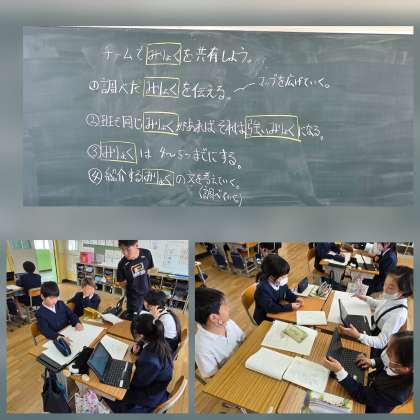 チームでみりょくを共有しよう。
①調べたみりょくを伝える。マップを広げていく。
②班で同じみりょくがあればそれは強いみりょくになる。
③みりょくは4〜5つまでにする。
④紹介するみりょくの文を考えていく。
(調べもいいよ)